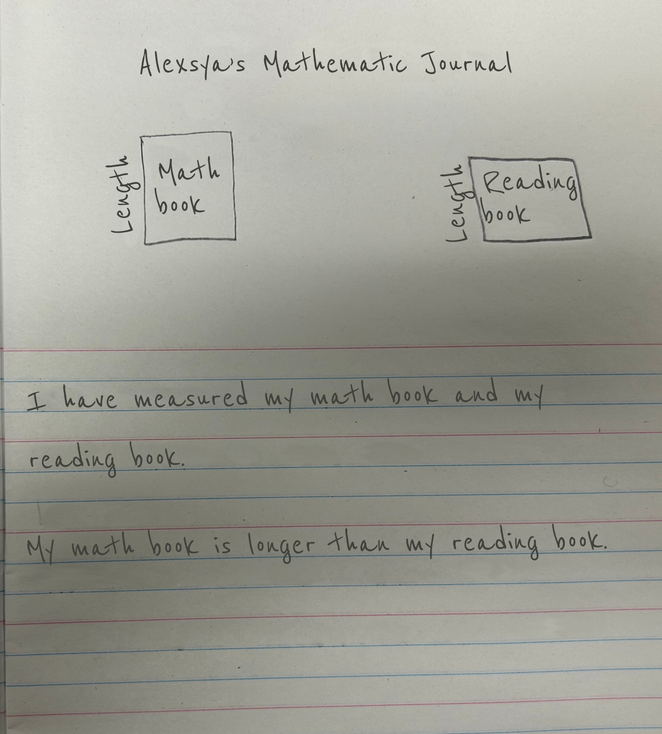 Alexsya's Mathematic Journal
Length
Math
book
Length
Reading
book
I have measured my math book and my
reading book.
My math book is longer than my reading book.